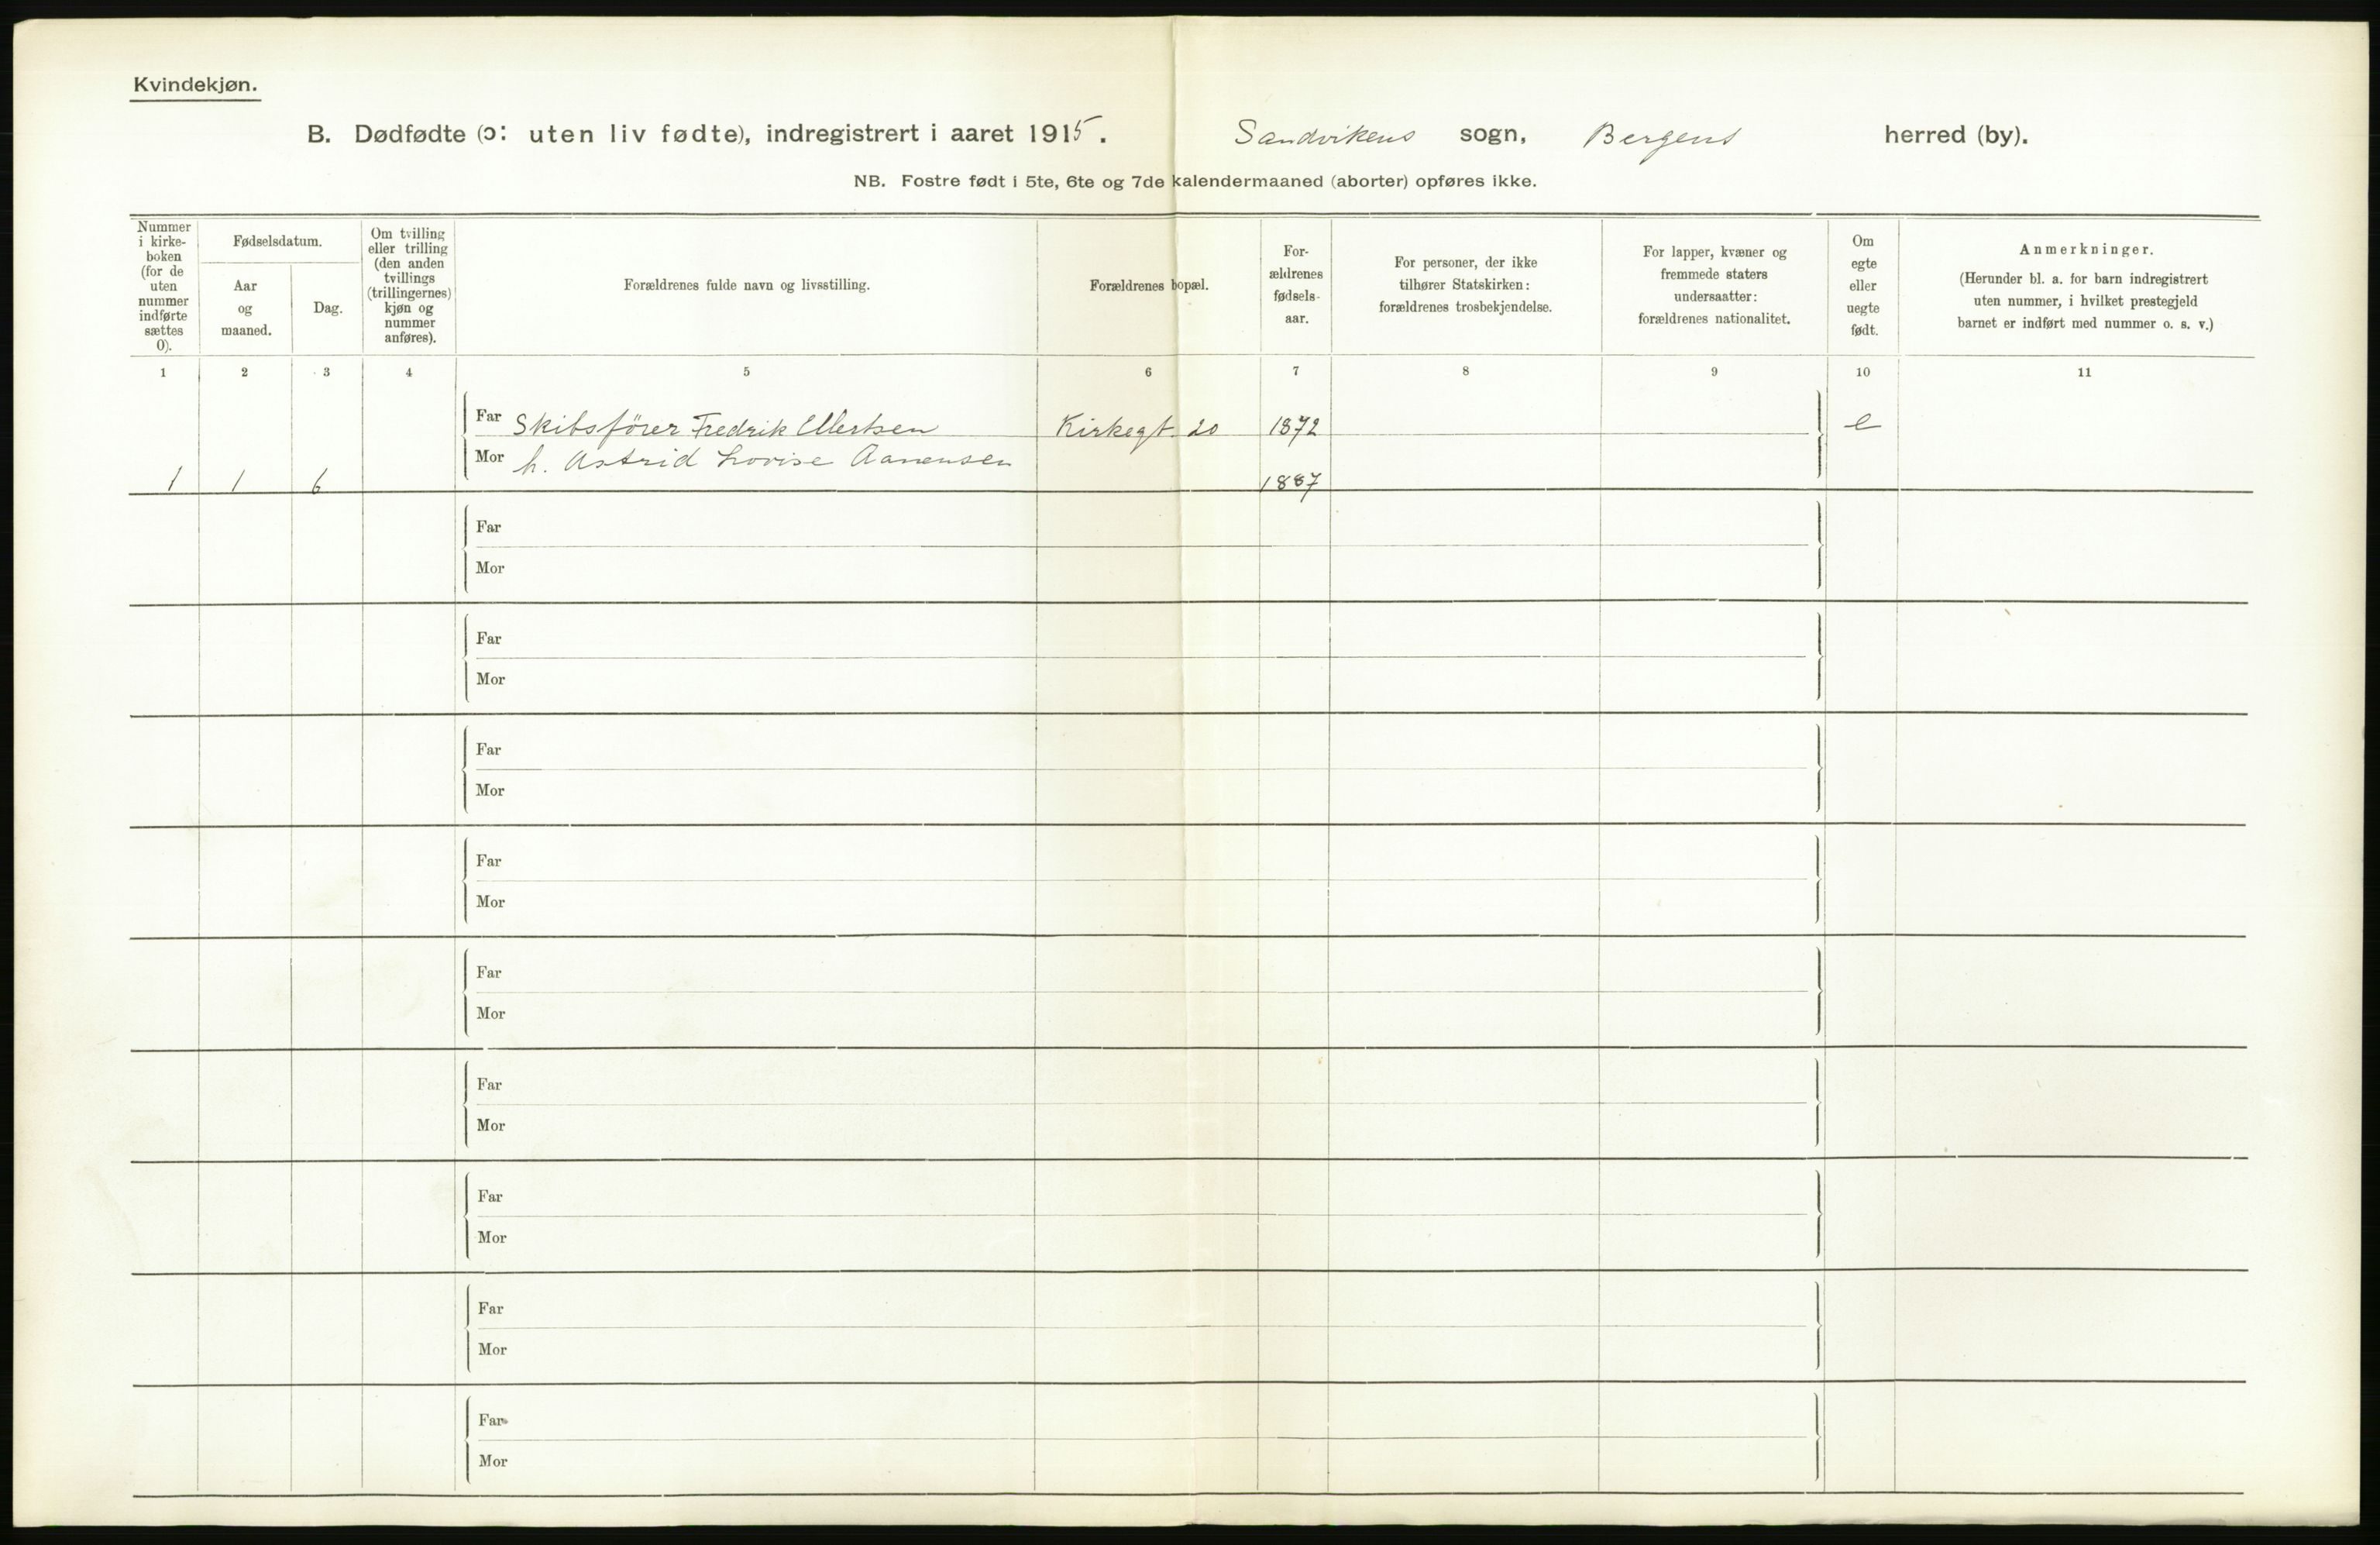 Kvindekjøn.
B. Dødfødte (ɔ: uten liv fødte), indregistrert i aaret 1915. Sandvikens sogn, Bergens herred (by).
NB. Fostre født i 5te, 6te og 7de kalendermaaned (aborter) opføres ikke.
Nummer
i kirke-
boken
(for de
uten
nummer
indførte
sættes
0).
Fødselsdatum.
Aar
og
maaned.
Dag.
Om tvilling
eller trilling
(den anden
tvillings
(trillingernes)
kjøn og
nummer
anføres).
Forældrenes fulde navn og livsstilling.
Forældrenes bopæl.
For-
ældrenes
fødsels-
aar.
For personer, der ikke
tilhører Statskirken:
forældrenes trosbekjendelse.
For lapper, kvæner og
fremmede staters
undersaatter:
forældrenes nationalitet.
Om
egte
eller
uegte
født.
Anmerkninger.
(Herunder bl. a. for barn indregistrert
uten nummer, i hvilket prestegjeld
barnet er indført med nummer o. s. v.)
1 2 3 4 5 6 7 8 9 10 11
Far Skibsfører Fredrik Ellertsen Kirkegt. 20 1872 e
Mor h. Astrid Lovise Aanensen
1 1 6 1887
Far
Mor
Far
Mor
Far
Mor
Far
Mor
Far
Mor
Far
Mor
Far
Mor
Far
Mor
Far
Mor